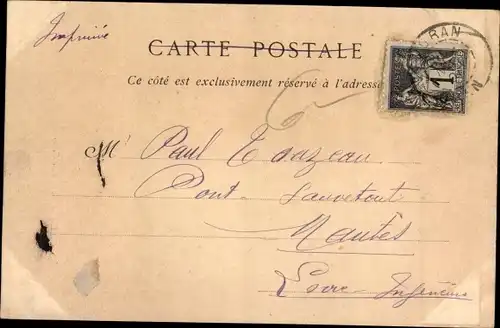 Imprimé
CARTE POSTALE
RAN
Ce côté est exclusivement réservé à l'adresse
1
M Paul
Pont Sauvetout
Nantes
Loire-Inférieure